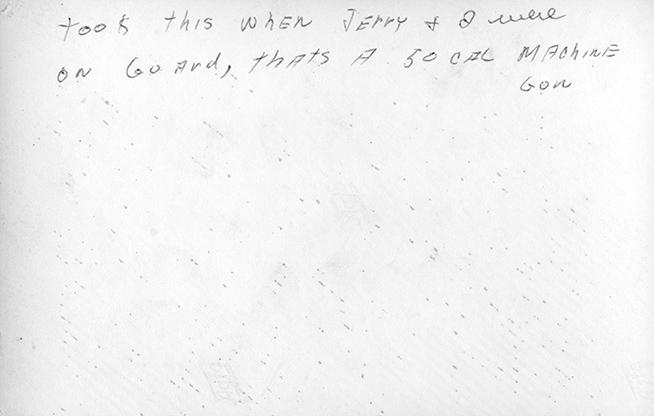 took this when Jerry & I were
on Guard, thats A 50 cal Machine
Gun